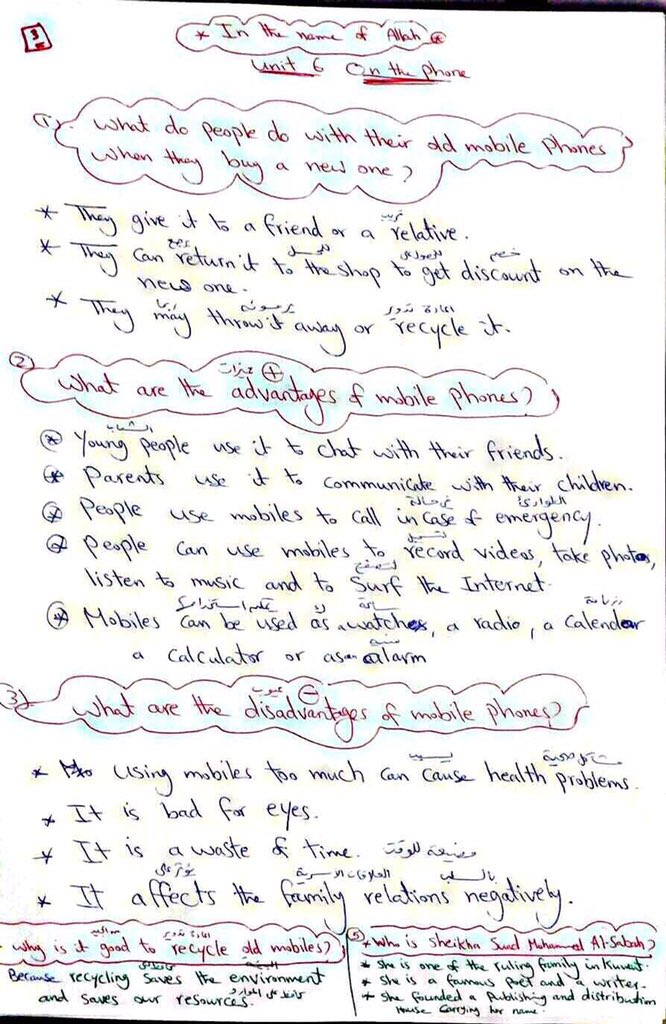 3
* In the name of Allah *
Unit 6 On the phone
(1). What do people do with their old mobile phones
when they buy a new one?
قريب
* They give it to a friend or a relative.
يرجع للمحل للحصول على خصم
* They can return it to the shop to get discount on the
new one.
ربما يرمونه اعادة تدوير
* They may throw it away or recycle it.
مميزات
2) What are the advantages of mobile phones?
الشباب
* Young people use it to chat with their friends.
* Parents use it to communicate with their children.
في حالة الطوارئ
* People use mobiles to call in case of emergency.
تسجيل
* People can use mobiles to record videos, take photos,
تصفح
listen to music and to Surf the Internet.
يمكن استخدامه ك ساعة رزنامة
* Mobiles can be used as a watches, a radio, a calendar
منبه
a calculator or as an alarm
عيوب
3) What are the disadvantages of mobile phones?
يسبب مشاكل صحية
* Using mobiles too much can cause health problems.
* It is bad for eyes.
* It is a waste of time. مضيعة للوقت
يؤثر على العلاقات الاسرية بالسلب
* It affects the family relations negatively.
اعادة تدوير
- Why is it good to recycle old mobiles?
البيئة
Because recycling saves the environment
and saves our resources.
5 * Who is Sheikha Suad Mohammed Al-Sabah?
* She is one of the ruling family in Kuwait.
* She is a famous poet and a writer.
* She founded a publishing and distribution
House carrying her name.